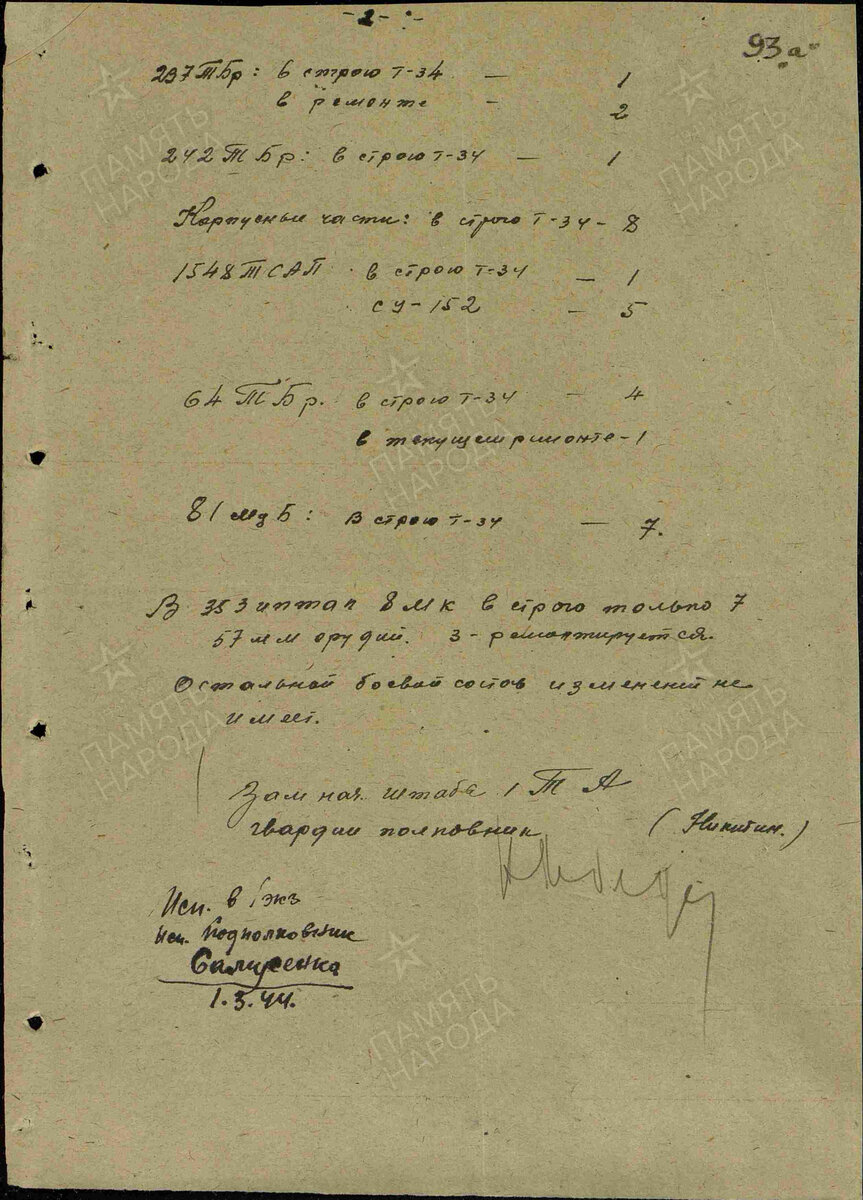 -2-
93а
237ТБр: в строю Т-34 — 1
в ремонте - 2
242ТБр: в строю Т-34 — 1
Корпусные части: в строю Т-34 - 8
1548ТСАП в строю Т-34 — 1
СУ-152 — 5
64 ТБр. в строю Т-34 - 4
в текущем ремонте - 1
81 мдБ: в строю Т-34 — 7.
В 353 иптап 8 мк в строю только 7
57 мм орудий. 3 - ремонтируется.
Остальной боевой состав изменений не
имеет.
Зам нач. штаба 1 ТА
гвардии полковник (Никитин.)
Исп. в 1 экз
исп. Подполковник
1.3.44.
ПАМЯТЬ
НАРОДА
ПАМЯТЬ
НАРОДА
ПАМЯТЬ
НАРОДА
ПАМЯТЬ
НАРОДА
ПАМЯТЬ
НАРОДА
ПАМЯТЬ
НАРОДА